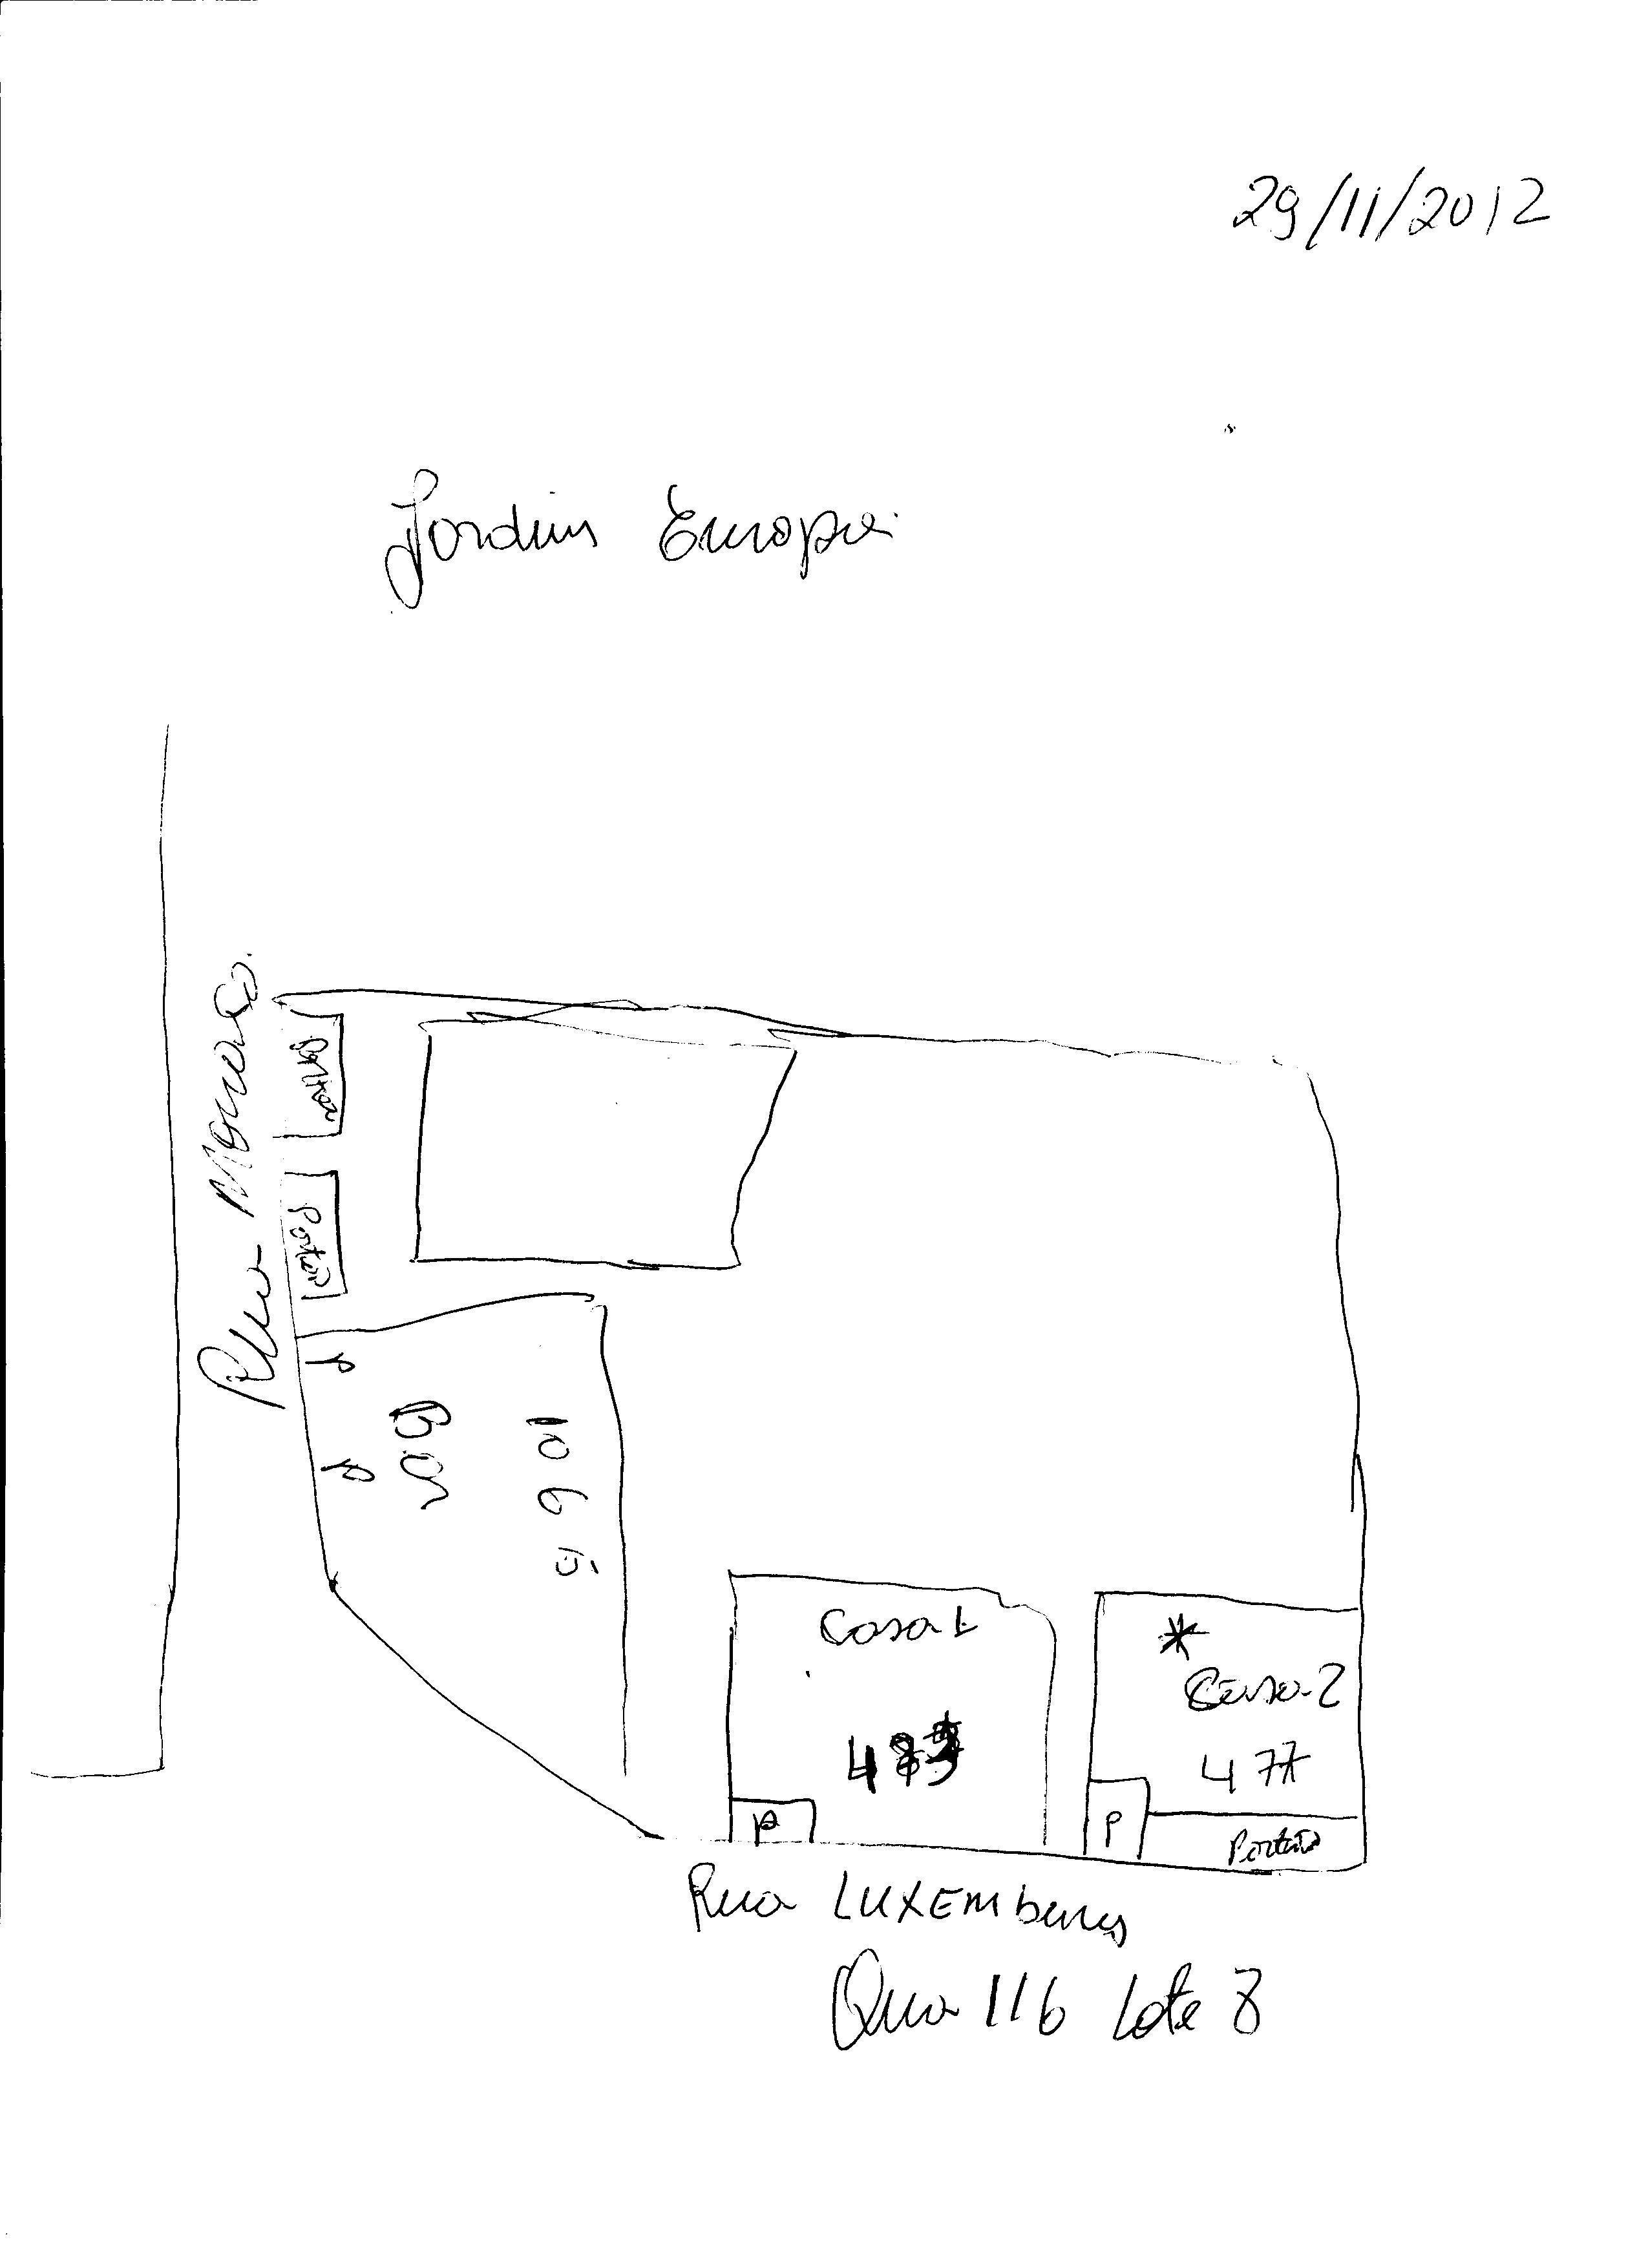 29/11/2012
Jardim Europa
Rua Monaco.
Portão
Portão
P
P
Bar
1065
Casa 1
*
Casa 2
477
P
P
Portão
Rua LUXEMburg
Qua 116 Lote 8